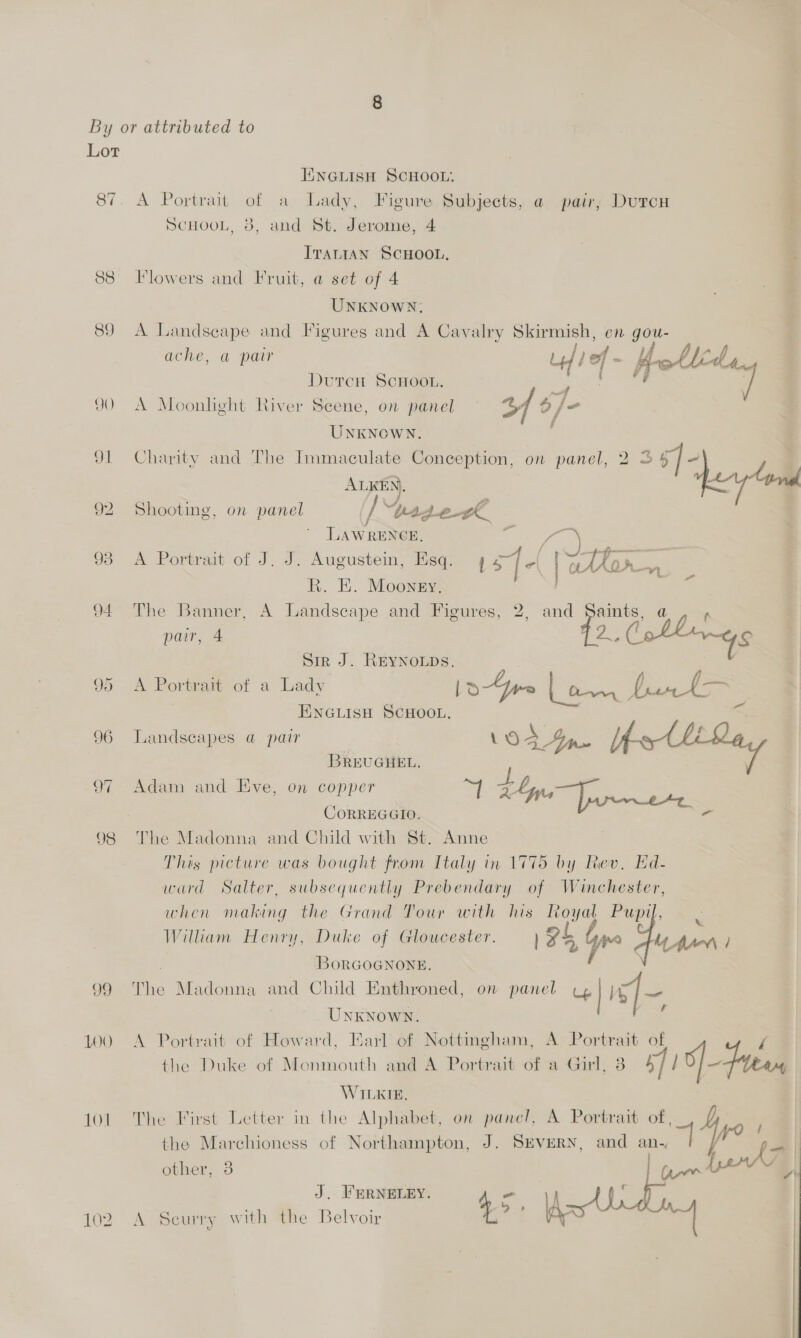 8
By or attributed to
Lot
ENGLISH SCHOOL.
87. A Portrait of a Lady, Figure Subjects, a pair, DUTCH
SCHOOL, 3, and St. Jerome, 4
ITALIAN SCHOOL.
88 Flowers and Fruit, a set of 4
UNKNOWN.
89 A Landscape and Figures and A Cavalry Skirmish, en gou-
ache, a pair Holliday
DUTCH SCHOOL.
90 A Moonlight River Scene, on panel
UNKNOWN.
91 Charity and The Immaculate Conception, on panel, 2
ALKEN.
92 Shooting, on panel
LAWRENCE.
93 A Portrait of J. J. Augustein, Esq. 15/-
R. E. MOONEY.
94 The Banner, A Landscape and Figures, 2, and Saints, a
pair, 4 Collings
SIR J. REYNOLDS.
95 A Portrait of a Lady 10 gns
ENGLISH SCHOOL.
96 Landscapes a pair Holliday
BREUGHEL.
97 Adam and Eve, on copper
CORREGGIO.
98 The Madonna and Child with St. Anne
This picture was bought from Italy in 1775 by Rev. Ed-
ward Salter, subsequently Prebendary of Winchester,
when making the Grand Tour with his Royal Pupil,
William Henry, Duke of Gloucester.
BORGOGNONE.
99 The Madonna and Child Enthroned, on panel
UNKNOWN.
100 A Portrait of Howard, Earl of Nottingham, A Portrait of
the Duke of Monmouth and A Portrait of a Girl, 3
WILKIE.
101 The First Letter in the Alphabet, on panel, A Portrait of,
the Marchioness of Northampton, J. SEVERN, and an-
other, 3
J. FERNELEY.
102 A Scurry with the Belvoir Holliday